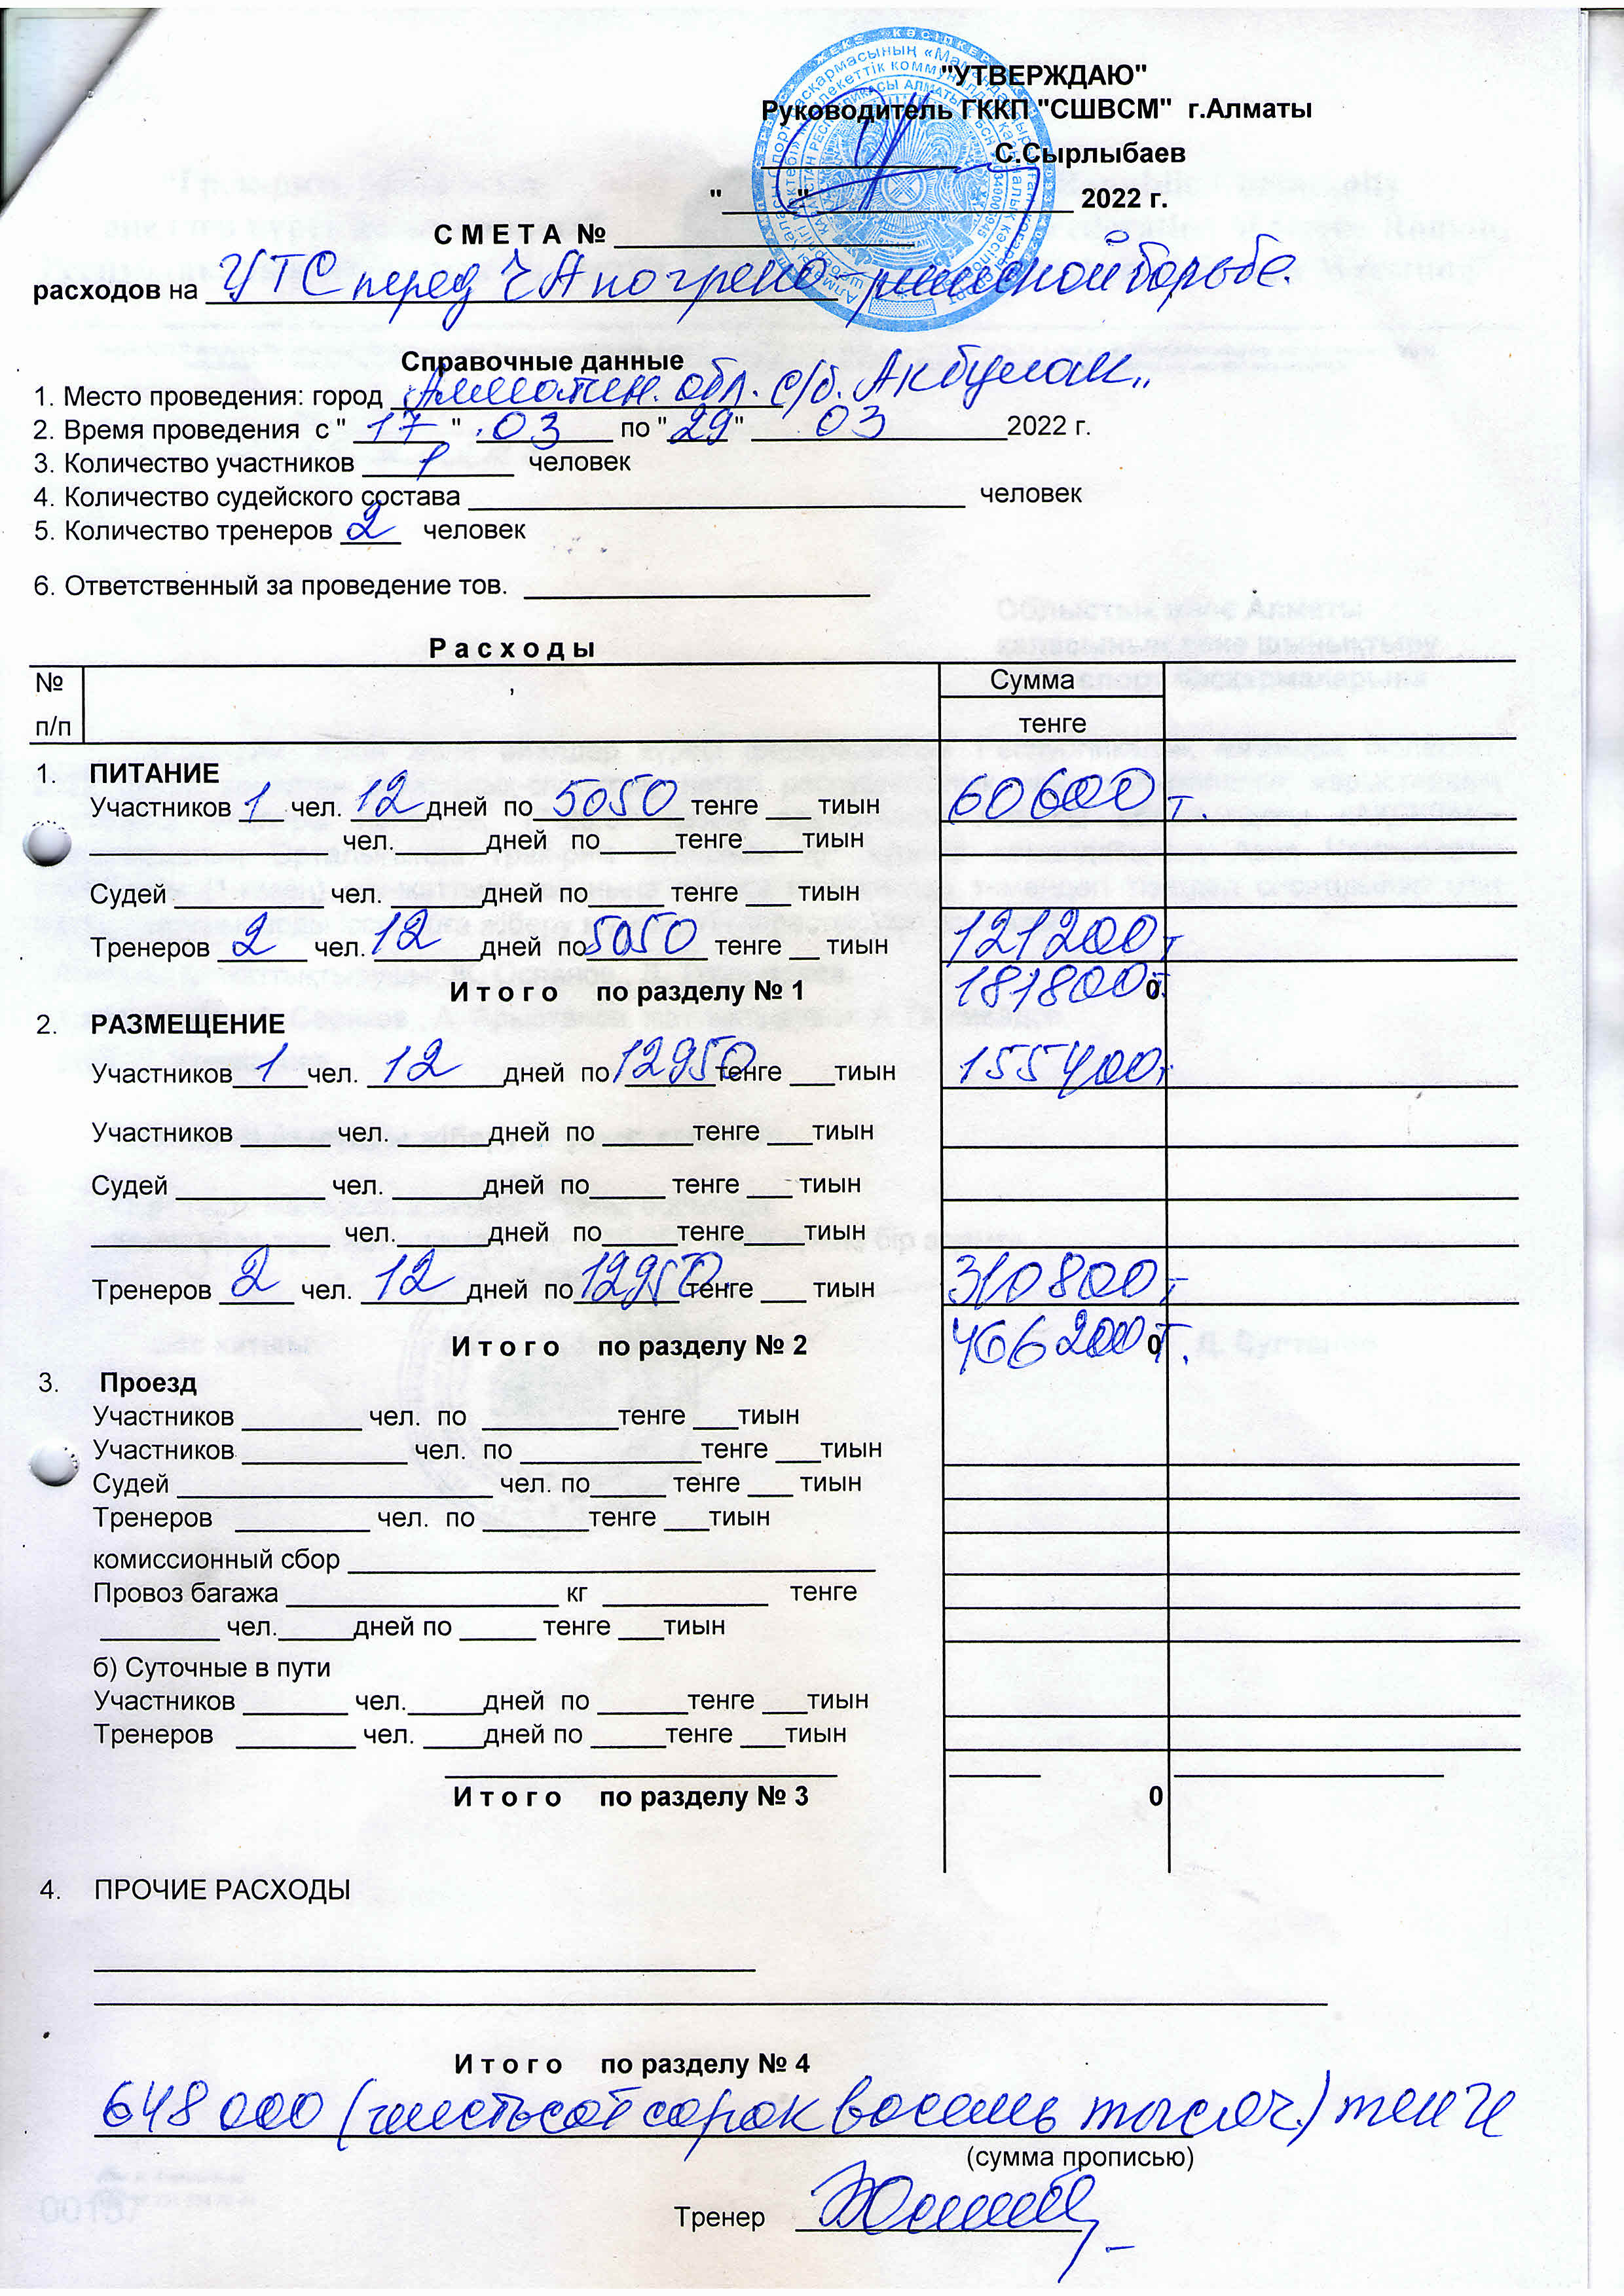 "УТВЕРЖДАЮ"
Руководитель ГККП "СШВСМ" г.Алматы
____________ С.Сырлыбаев
"_____"__________________ 2022 г.
С М Е Т А № ____________________
расходов на УТС перед ЧА по греко-римской борьбе.
Справочные данные
1. Место проведения: город Алматин. обл. с/б. Акбулак
2. Время проведения с " 17 " 03 по " 29 " 03 2022 г.
3. Количество участников 1 человек
4. Количество судейского состава _________________ человек
5. Количество тренеров 2 человек
6. Ответственный за проведение тов. _______________________
Р а с х о д ы
№ п/п
Сумма
тенге
1. ПИТАНИЕ
Участников 1 чел. 12 дней по 5050 тенге ___ тиын 60600 т.
________________ чел.______дней по_____тенге____тиын
Судей __________ чел. ______дней по_____ тенге ___ тиын
Тренеров 2 чел. 12 дней по 5050 тенге __ тиын 121200 т
И т о г о по разделу № 1 181800 т. 0
2. РАЗМЕЩЕНИЕ
Участников 1 чел. 12 дней по 12950 тенге ___тиын 155400 т
Участников ______ чел. ______дней по ______тенге ___тиын
Судей __________ чел. ______дней по_____ тенге ___ тиын
________________ чел.______дней по_____тенге____тиын
Тренеров 2 чел. 12 дней по 12950 тенге ___ тиын 310800 т
И т о г о по разделу № 2 466200 т. 0
3. Проезд
Участников ________ чел. по _________тенге ___тиын
Участников ___________ чел. по ____________тенге ___тиын
Судей _____________________ чел. по_____ тенге ___ тиын
Тренеров _________ чел. по _______тенге ___тиын
комиссионный сбор ___________________________________
Провоз багажа __________________ кг ___________ тенге
________ чел._____дней по _____ тенге ___тиын
б) Суточные в пути
Участников _______ чел._____дней по ______тенге ___тиын
Тренеров ________ чел. ____дней по _____тенге ___тиын
И т о г о по разделу № 3 0
4. ПРОЧИЕ РАСХОДЫ
И т о г о по разделу № 4
648 000 (шестьсот сорок восемь тысяч) тенге
(сумма прописью)
Тренер